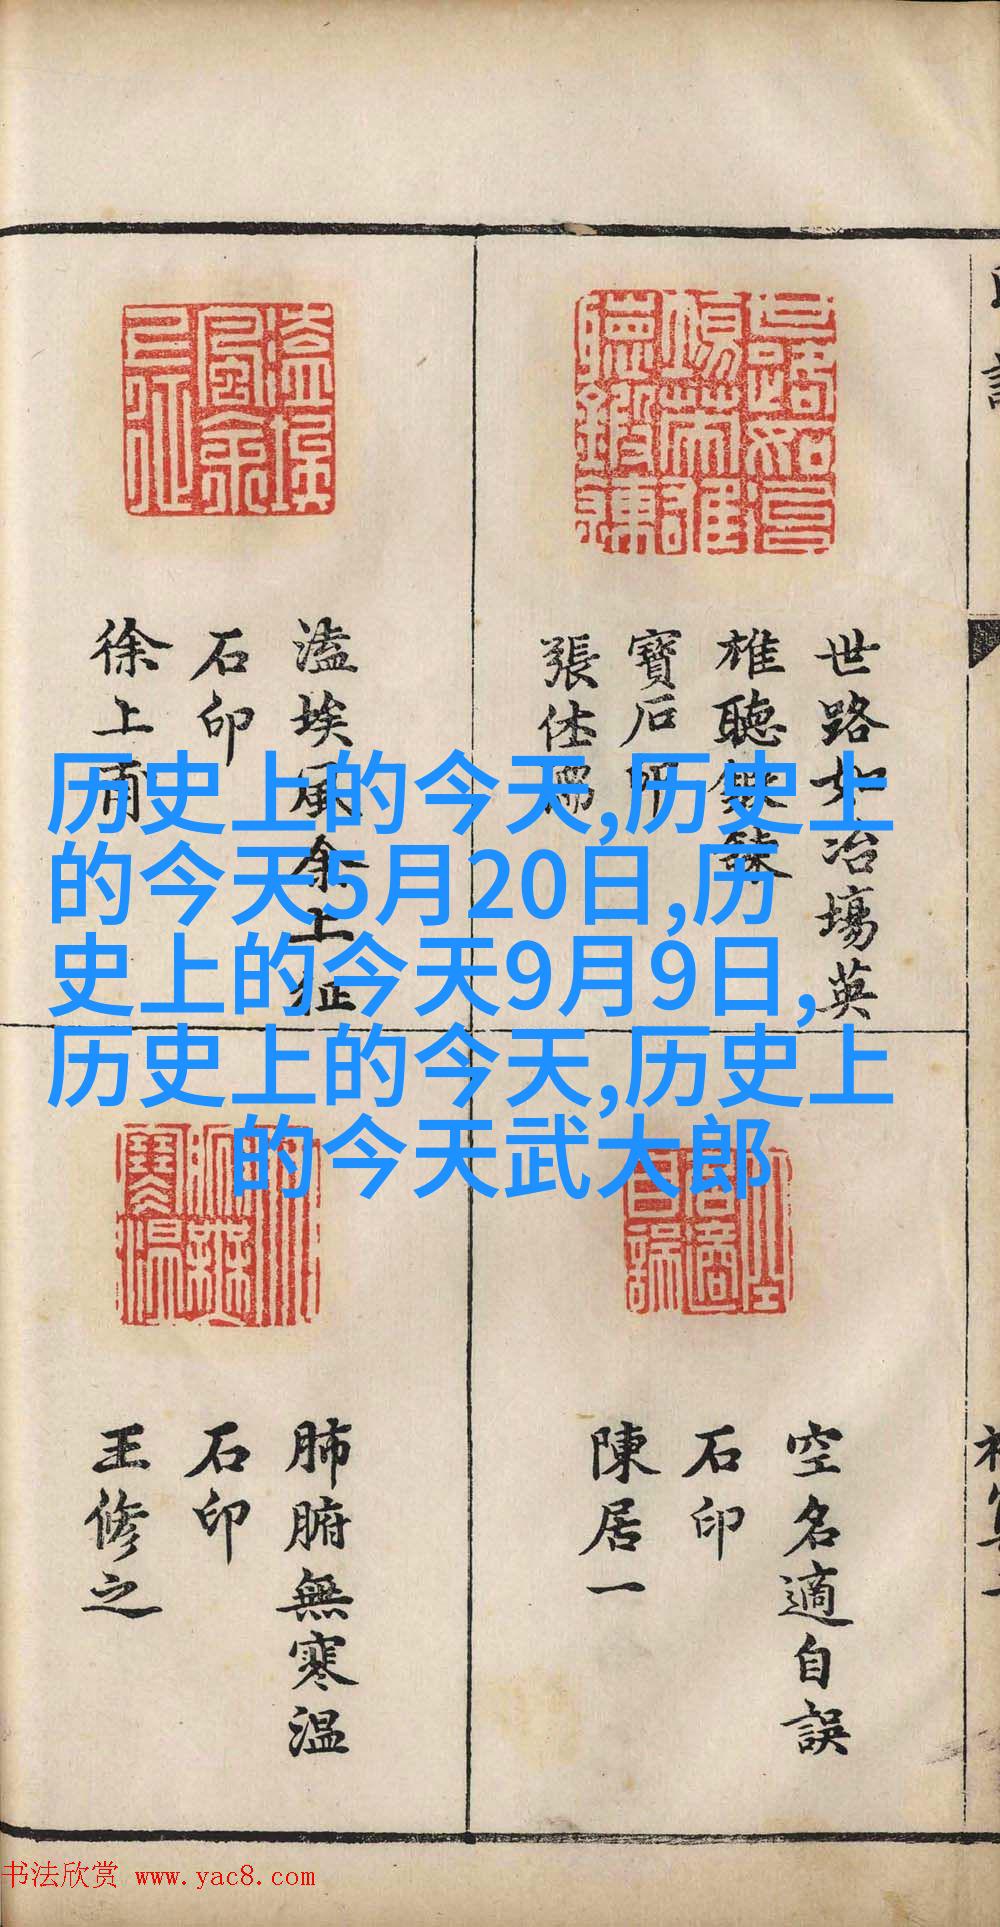 世路如冶場英
雄聽鍛鍊
寶石印
張仕
溘埃風余上征
石印
徐上甫
空名適自誤
石印
陳居一
肺腑無寒温
石印
王修之
历史上的今天,历史上
的今天5月20日,历
史上的今天9月9日,
历史上的今天,历史上
的今天武大郎
书法欣赏 www.yac8.com